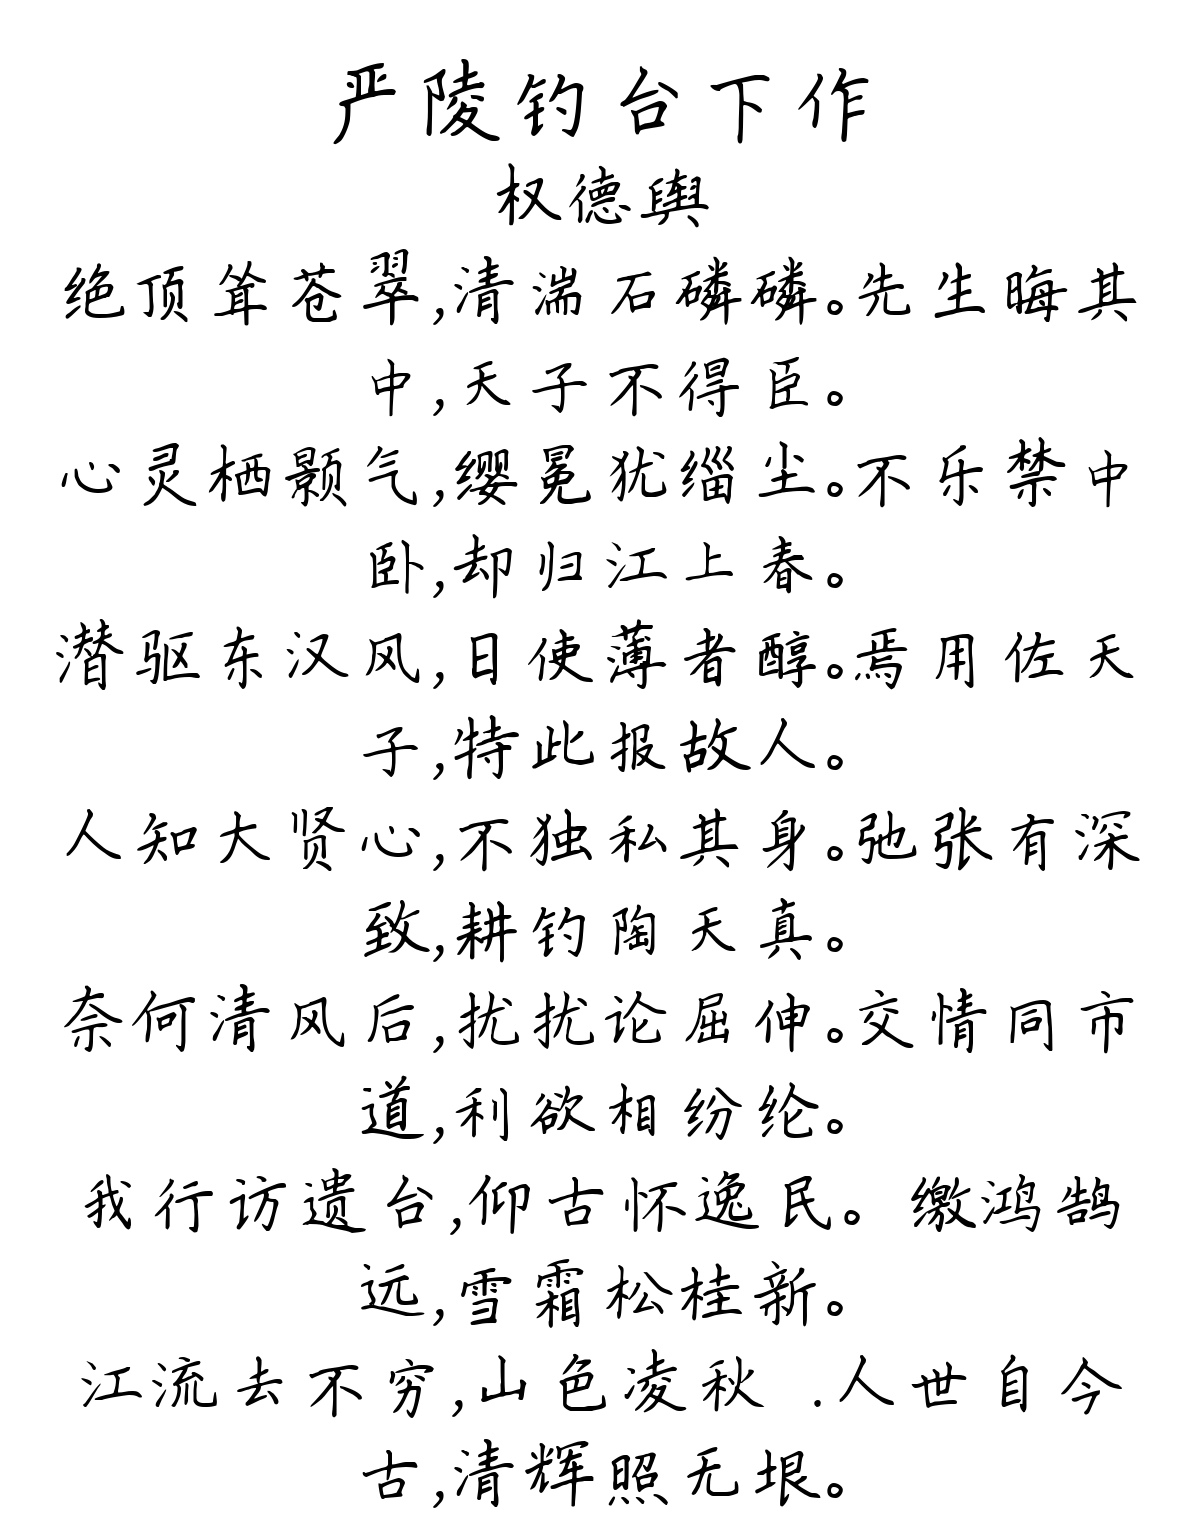 严陵钓台下作
权德舆
绝顶耸苍翠,清湍石磷磷。先生晦其
中,天子不得臣。
心灵栖颢气,缨冕犹缁尘。不乐禁中
卧,却归江上春。
潜驱东汉风,日使薄者醇。焉用佐天
子,特此报故人。
人知大贤心,不独私其身。弛张有深
致,耕钓陶天真。
奈何清风后,扰扰论屈伸。交情同市
道,利欲相纷纶。
我行访遗台,仰古怀逸民。 缴鸿鹄
远,雪霜松桂新。
江流去不穷,山色凌秋 .人世自今
古,清辉照无垠。